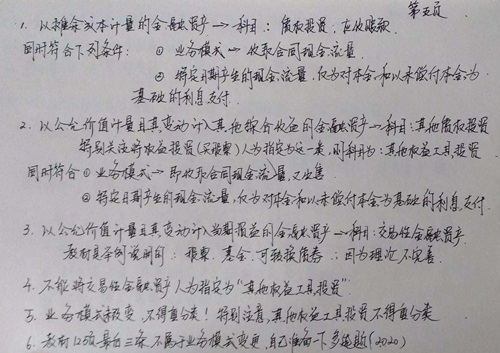 第五页
1. 以摊余成本计量的金融资产→科目:债权投资、应收账款
同时符合下列条件: ① 业务模式→收取合同现金流量
② 特定日期产生的现金流量,仅为对本金和以未偿付本金为
基础的利息支付.
2. 以公允价值计量且其变动计入其他综合收益的金融资产→科目:其他债权投资
特别关注将权益投资(买股票)人为指定为这一类,则科目为:其他权益工具投资
同时符合 ① 业务模式→即收取合同现金流量,又出售
② 特定日期产生的现金流量,仅为对本金和以未偿付本金为基础的利息支付.
3. 以公允价值计量且其变动计入当期损益的金融资产→科目:交易性金融资产
教材具体例说明的:股票、基金、可转换债券 :因为理财不定着
4. 不能将交易性金融资产人为指定为“其他权益工具投资”
5. 业务模式未改变,不得重分类!特别注意,其他权益工具投资不得重分类
6. 教材12页最后三条不属于业务模式变更,自己准备一下多选题(2020)